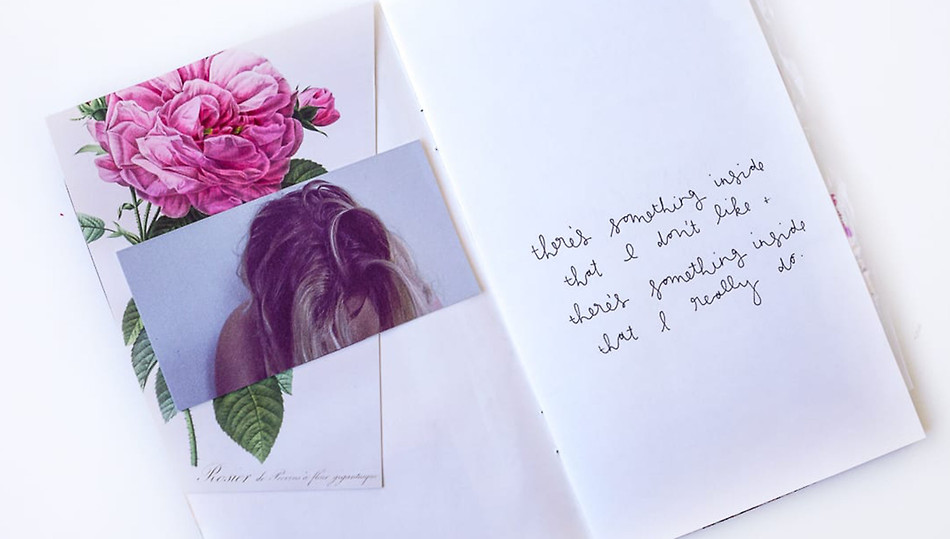 Rosier de Provins à fleur gigantesque
there's something inside
that I don't like +
there's something inside
that I really do.